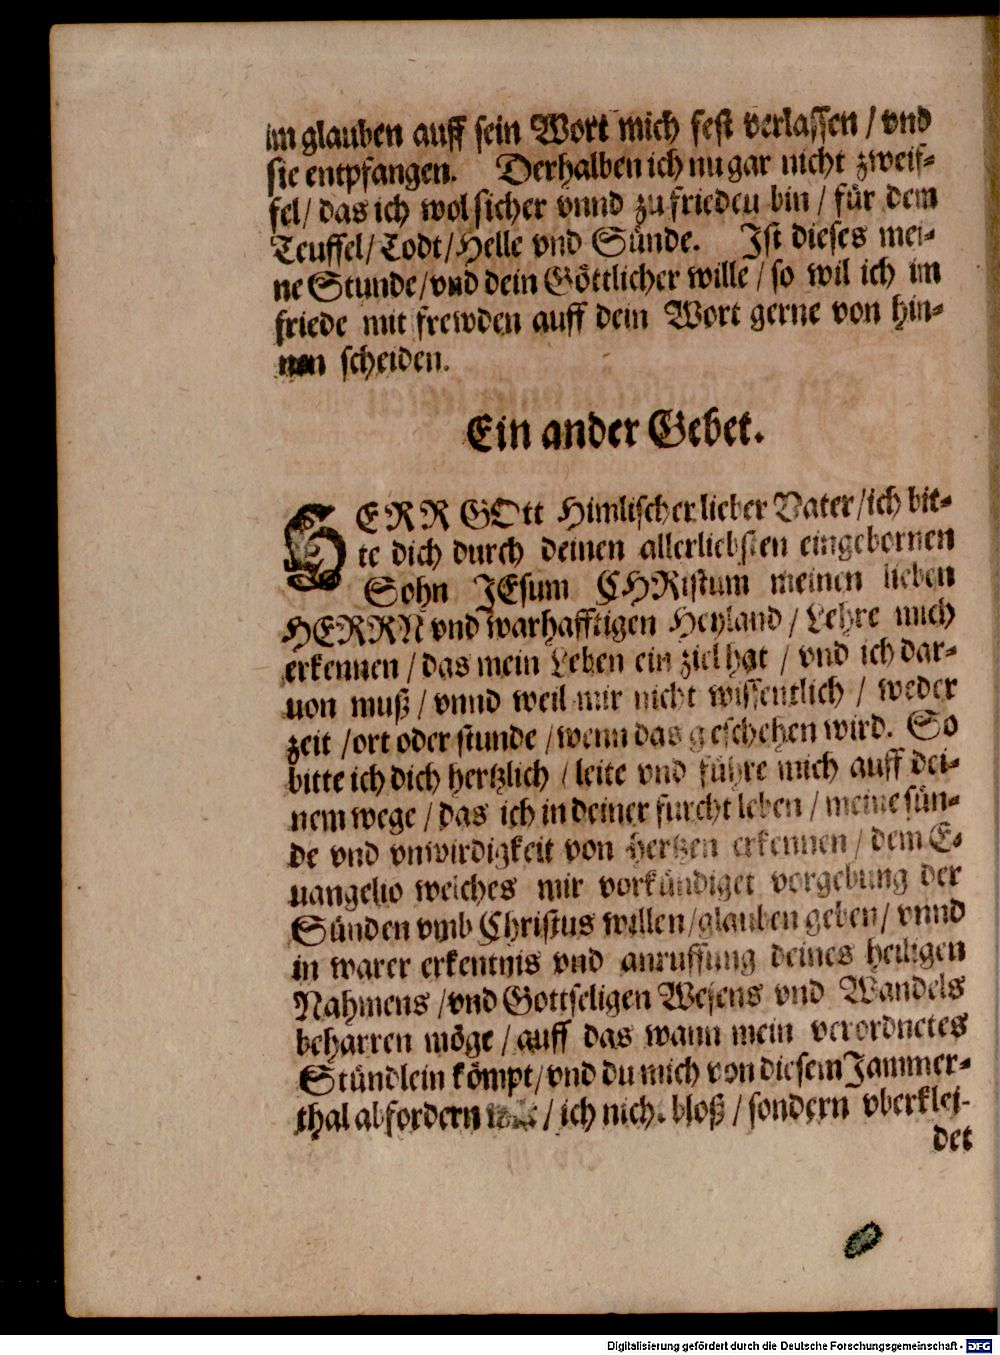 im glauben auff sein Wort mich fest verlassen / vnd
sie entpfangen. Derhalben ich nu gar nicht zweif-
fel / das ich wol sicher vnnd zu frieden bin / für dem
Teuffel / Todt / Helle vnd Sünde. Ist dieses mei-
ne Stunde / vnd dein Göttlicher wille / so wil ich im
friede mit frewden auff dein Wort gerne von hin-
nen scheiden.
Ein ander Gebet.
HERR GOtt Himlischer lieber Vater / ich bit-
te dich durch deinen allerliebsten eingebornen
Sohn JEsum CHRistum meinen lieben
HERRN vnd warhafftigen Heyland / Lehre mich
erkennen / das mein Leben ein ziel hat / vnd ich dar-
uon muß / vnnd weil mir nicht wissentlich / weder
zeit / ort oder stunde / wenn das geschehen wird. So
bitte ich dich hertzlich / leite vnd führe mich auff dei-
nem wege / das ich in deiner furcht leben / meine sün-
de vnd vnwirdigkeit von hertzen erkennen / dem E-
uangelio welches mir vorkündiget vorgebung der
Sünden vmb Christus willen / glauben geben / vnnd
in warer erkentnis vnd anruffung deines heiligen
Nahmens / vnd Gottseligen Wesens vnd Wandels
beharren möge / auff das wann mein verordnetes
Stündlein kömpt / vnd du mich von diesem Jammer-
thal abfordern / ich nicht bloß / sondern vberklei-
det
Digitalisierung gefördert durch die Deutsche Forschungsgemeinschaft - DFG